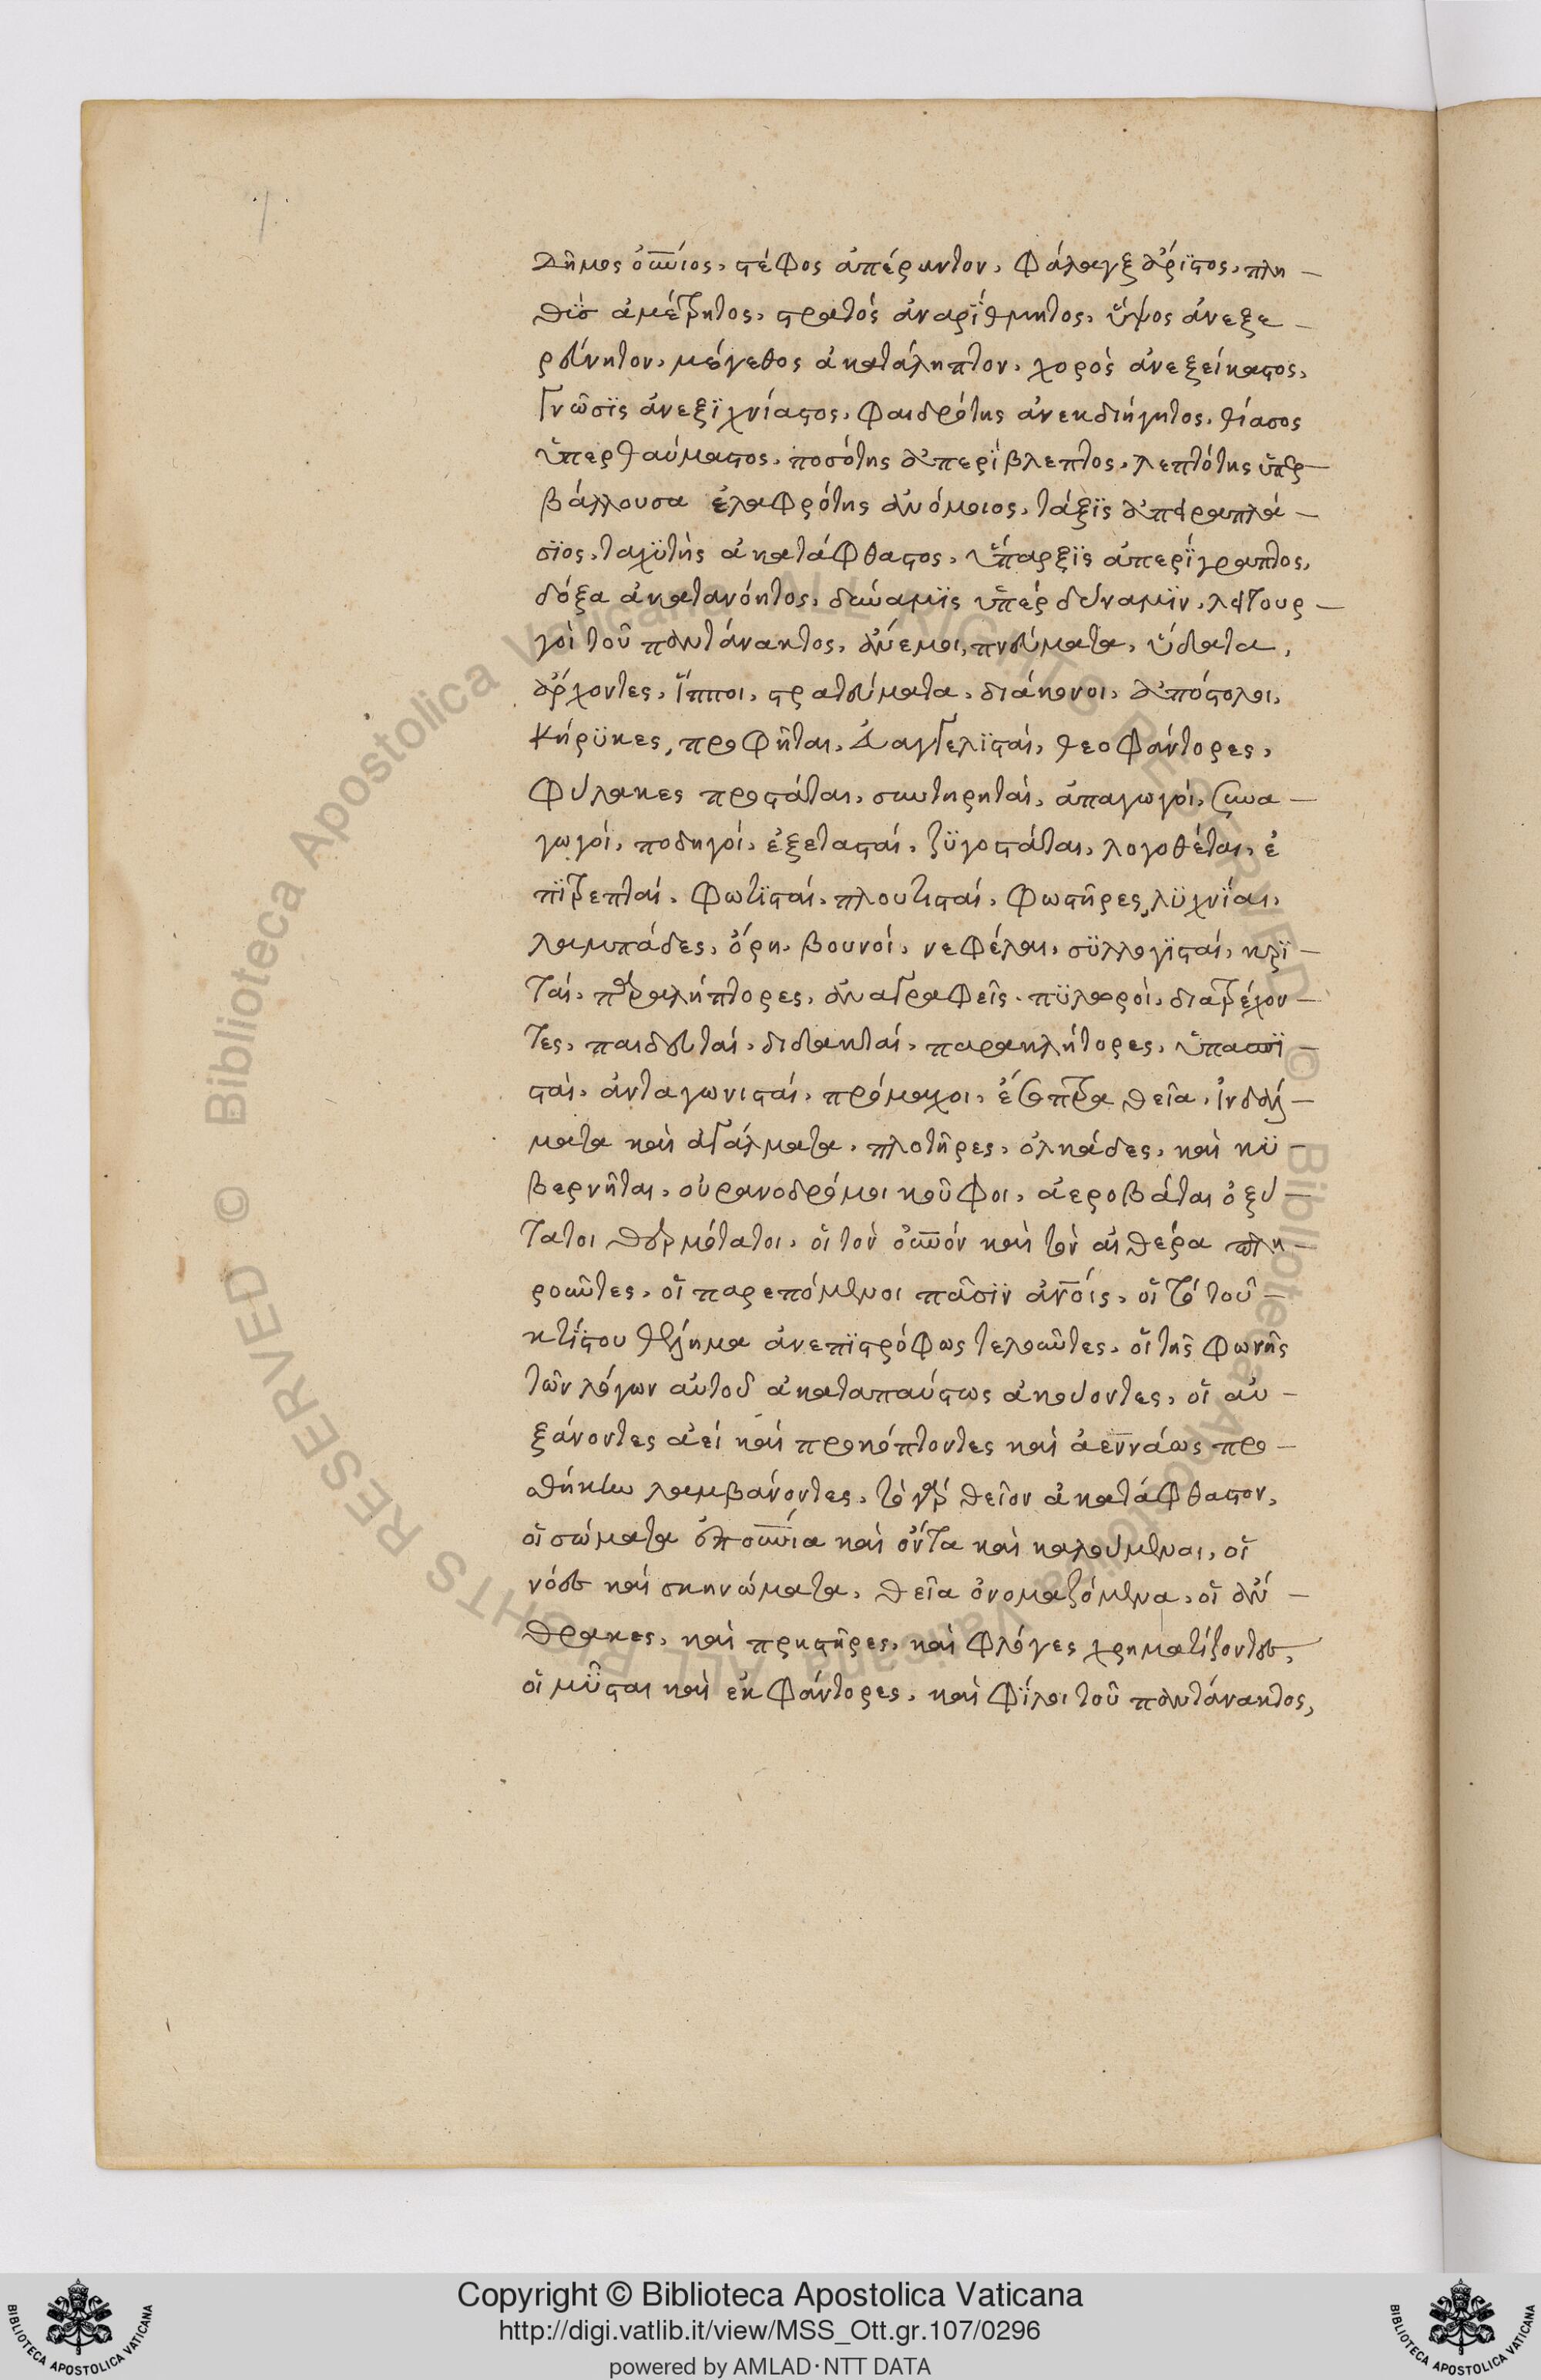 δῆμος οὐνίος, στέφος ἀπέραντον, φάλαγξ ἀρίϊστος, πλη –
θὺς ἀμέτρητος, στρατός ἀναρΐθμητος, ὕψος ἀνεξε –
ρεύνητον, μέγεθος ἀκατάληπτον, χορὸς ἀνεξείκαστος,
γνῶσϊς ἀνεξϊχνίαστος, φαιδρότης ἀνεκδιήγητος, θίασος
ὑπερθαύμαστος, ποσότης ἀπερίβλεπτος, λεπτότης ὑπερ –
βάλλουσα ἐλαφρότης ἀνόμοιος, τάξϊς ἀπαραπλά –
σϊος, ταχϋτὴς ἀκατάφθαστος, ὕπαρξϊς ἀπερΐγραπτος,
δόξα ἀκατανόητος, δύναμϊς ὑπέρ δύναμϊν, λειτουρ –
γοὶ τοῦ παντάνακτος, ἄνεμοι, πνεύματα, ὕδατα,
ἄρχοντες, ἵπποι, στρατεύματα, διάκονοι, ἀπόστολοι,
κήρϋκες, προφῆται, εὐαγγελϊσταί, θεοφάντορες,
φύλακες προστάται, συντηρηταί, ἀπαγωγοί, συνα –
γωγοί, ποδηγοί, ἐξετασταί, ζϋγοστάται, λογοθέται, ἐ
πϊτρεπταί, φωτϊσταί, πλουτισταί, φωστῆρες, λϋχνΐαι,
λαμπάδες, ὄρη, βουνοί, νεφέλαι, σϋλλογϊσταί, κρϊ –
ταί, παραλήπτορες, ἀναγραφεῖς, πϋλωροὶ, διατρέχον –
τες, παιδευταί, διδακταί, παρακλήτορες, ὑπασπϊ –
σταὶ, ἀνταγωνισταί, πρόμαχοι, ἔσοπτρα θεῖα, ἰνδάλ –
ματα καὶ ἀγάλματα, πλοτῆρες, ὁλκάδες, καὶ κϋ –
βερνῆται, οὐρανοδρόμοι κοῦφοι, ἀεροβάται ὀξύ –
τατοι θερμότατοι, οἵ τὸν οὐνόν καὶ τὸν αἰθέρα πλη –
ροῦντες, οἵ παρεπόμενοι πᾶσϊν ἀνοίς, οἵ τό τοῦ –
κτίστου θέλημα ἀνεπϊστρόφως τελοῦντες, οἵ τῆς φωνῆς
τῶν λόγων αὐτοῦ ἀκαταπαύστως ἀκούοντες, οἵ αὐ –
ξάνοντες ἀεί καί προκόπτοντες καὶ ἀεννάως προ –
σθήκην λαμβάνοντες, τό γάρ θεῖον ἀκατάφθαστον,
οἵ σώματα ἐπουνία καὶ ὄντα καὶ καλούμενοι, οἵ
νόες καί σκηνώματα, θεῖα ὀνομαζόμενα, οἵ ἄν –
θρακες, καὶ πρηστῆρες, καὶ φλόγες χρηματίζοντες,
οἵ μύσται καὶ ἐκφάντορες, καὶ φΐλοι τοῦ παντάνακτος,
Copyright © Biblioteca Apostolica Vaticana
http://digi.vatlib.it/view/MSS_Ott.gr.107/0296
powered by AMLAD·NTT DATA